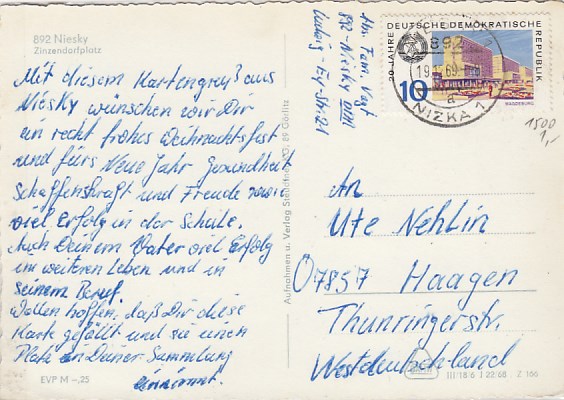 892 Niesky
Zinzendorfplatz
Mit diesem Kartengruß aus
Niesky wünschen wir Dir
ein recht frohes Weihnachtsfest
und fürs Neue Jahr Gesundheit
Schaffenskraft und Freude sowie
viel Erfolg in der Schule.
Auch Deinem Vater viel Erfolg
im weiteren Leben und in
seinem Beruf.
Wollen hoffen, daß Dir diese
Karte gefällt und sie einen
Platz in Deiner Sammlung
einnimmt.
EVP M –,25
Aufnahmen u. Verlag KG, 89 Görlitz
Abs. Fam. Vogt
892-Niesky
Ludwig-Ey-Str. 21
20 JAHRE DEUTSCHE DEMOKRATISCHE REPUBLIK
10
MAGDEBURG
892
NIZKA 1
a
1500
1,-
An
Ute Nehlin
Ö7857 Haagen
Thunringerstr.
Westdeutschland
III/18/6 J 22/68 Z 166